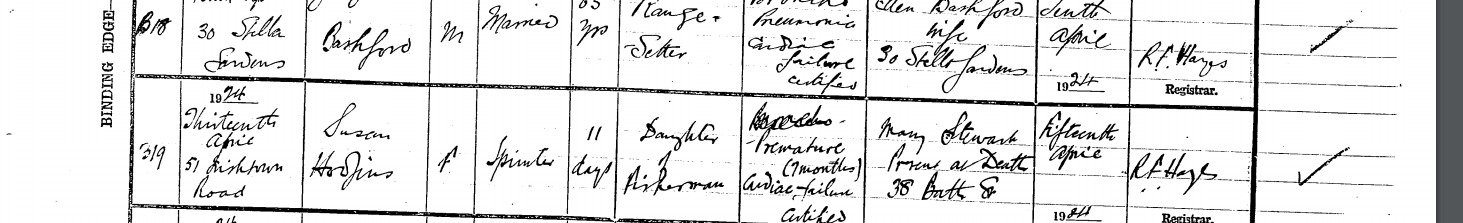 BINDING EDGE
318
30 Stella
Gardens
Bashford
M
Married
yrs
Range-
Setter
Pneumonia
Cardiac
failure
Certified
Ellen Bashford
wife
30 Stella Gardens
Tenth
April
1924
R.F. Hayes
Registrar.
319
1924
Thirteenth
April
51 Irishtown
Road
Susan
Hodgins
F.
Spinster
11
days
Daughter
of
Fisherman
Premature
(7 months)
Cardiac failure
Certified
Mary Stewart
Present at Death
38 Bath St
Fifteenth
April
1924
R.F. Hayes
Registrar.